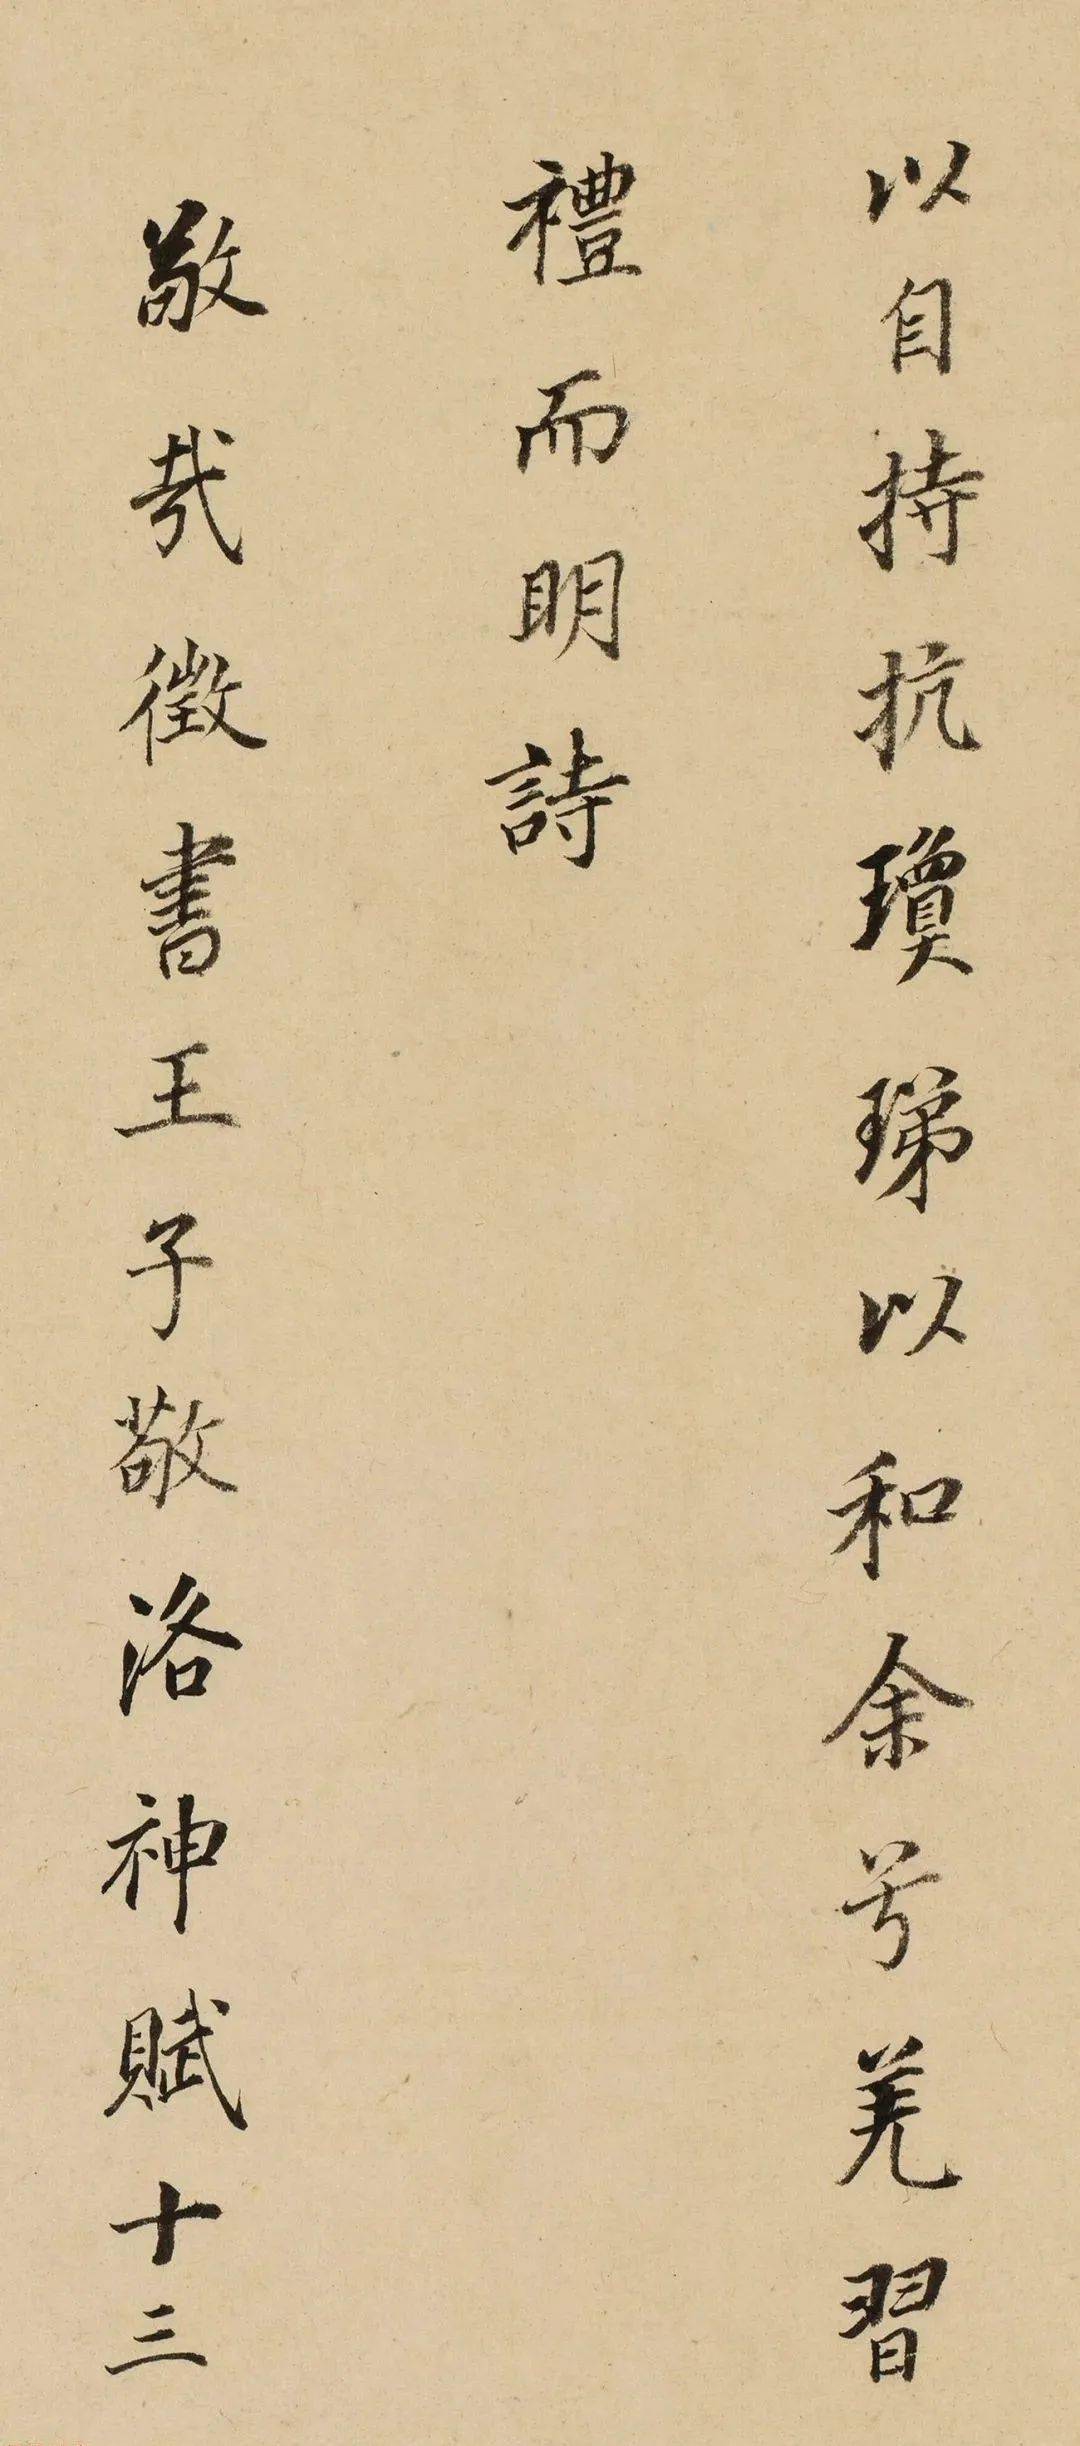 以自持抗瓊珶以和余兮羌習
禮而明詩
敬哉徵書王子敬洛神賦十三